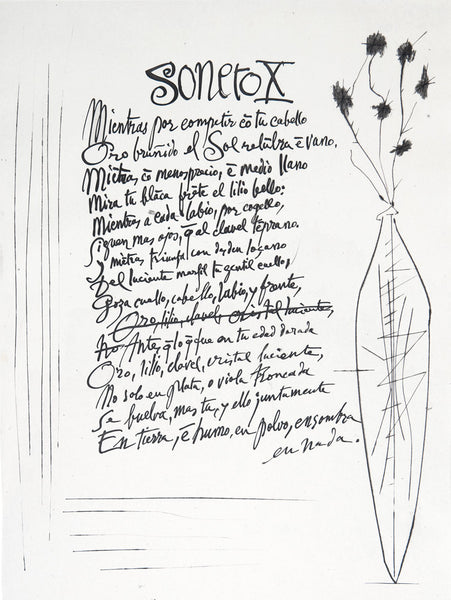 Soneto X
Mientras por competir cō tu cabello
Oro bruñido el Sol relūbra ē vano,
Miētras cō menosprecio, ē medio llano
Mira tu blāca frēte el lilio bello:
Mientras a cada labio, por cogello,
Siguen mas ojos, q̄ al clavel tēprano.
y miētras triumfa con desden loçano
Del luciente marfil tu gentil cuello;
Goza cuello, cabello, labio, y frente,
Oro, lilio, clavel, cristal luciente,
Antes, q̄ lo que en tu edad dorada
Oro, lilio, clavel, cristal luciente,
No solo en plata, o viola troncada
Se buelva, mas tu, y ello juntamente
En tierra, ē humo, en polvo, en sombra
en nada.